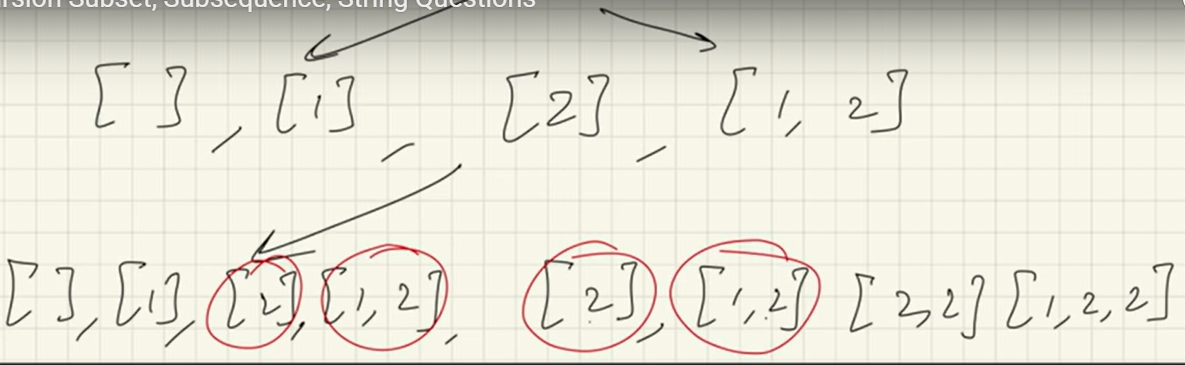 rsion Subset, Subsequence, String Questions
[ ] , [1] , [2] , [1, 2]
[ ], [1], [2], [1, 2], [2], [1,2] [2,2] [1,2,2]